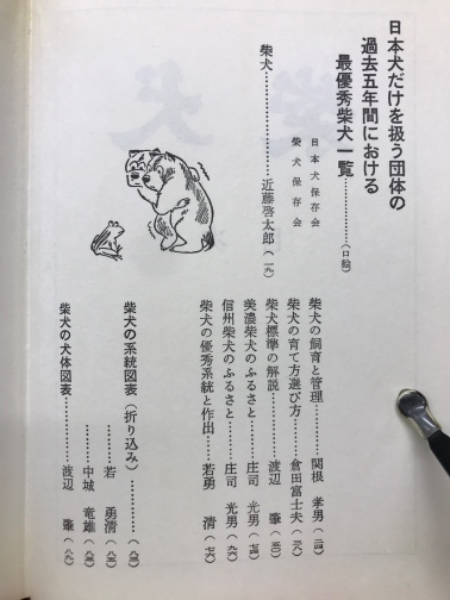 日本犬だけを扱う団体の
過去五年間における
最優秀柴犬一覧…………(口絵)
日本犬保存会
柴犬保存会
柴犬………………………近藤啓太郎(一九)
柴犬の飼育と管理…………関根 孝男(二四)
柴犬の育て方選び方………倉田富士夫(三八)
柴犬標準の解説……………渡辺 肇(五〇)
美濃柴犬のふるさと………庄司 光男(七四)
信州柴犬のふるさと………庄司 光男(六六)
柴犬の優秀系統と作出……若勇 清(七六)
柴犬の系統図表(折り込み)…………(八三)
…………若 勇清(八三)
…………中城 竜雄(八三)
柴犬の犬体図表……………渡辺 肇(八九)